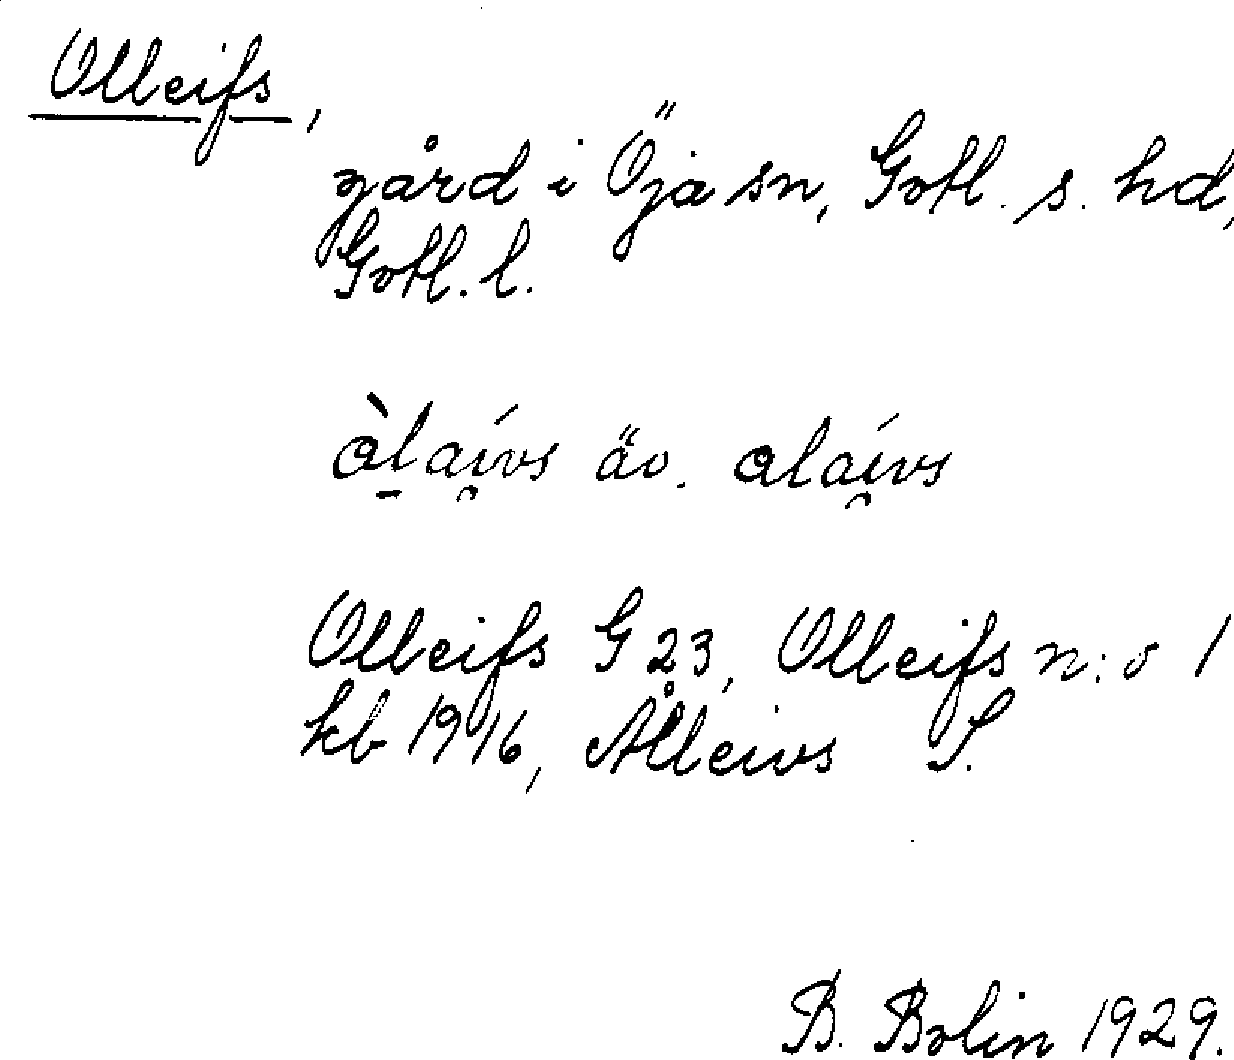 Olleifs,
gård i Öja sn, Gotl. s. hd,
Gotl. l.
àl̠aí̯vs äv. aláı̯vs
Olleifs G 23, Olleifs n:o 1
kb 1916, Ålleivs S.
B. Bolin 1929.